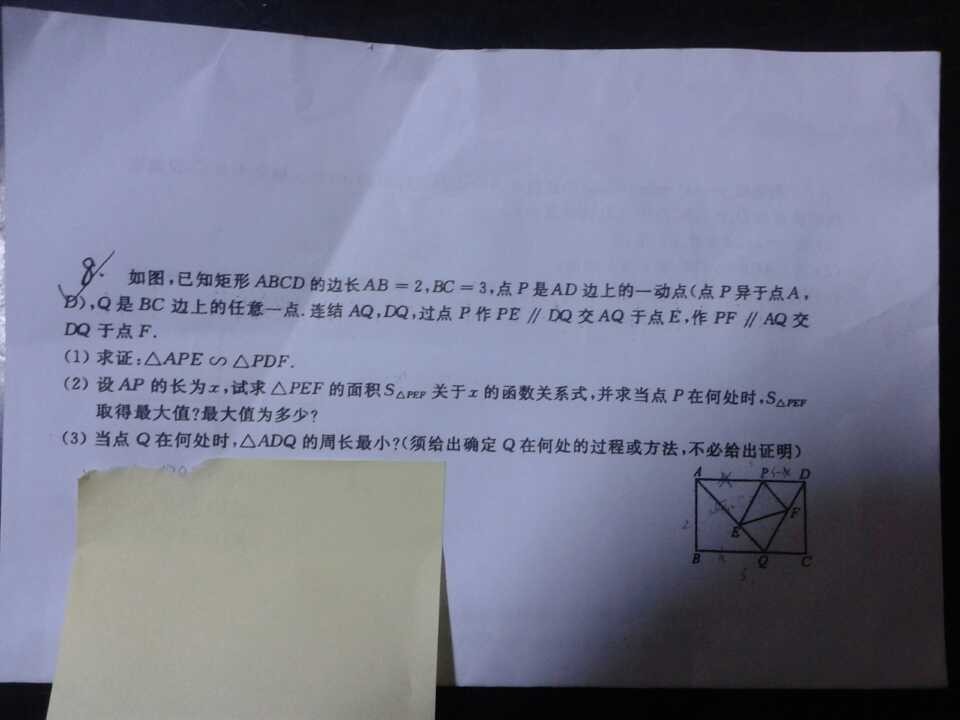 8.
如图,已知矩形 ABCD 的边长 AB = 2, BC = 3, 点 P 是 AD 边上的一动点(点 P 异于点 A,
D), Q 是 BC 边上的任意一点. 连结 AQ, DQ, 过点 P 作 PE ∥ DQ 交 AQ 于点 E, 作 PF ∥ AQ 交
DQ 于点 F.
(1) 求证:△APE ∽ △PDF.
(2) 设 AP 的长为 x, 试求 △PEF 的面积 S△PEF 关于 x 的函数关系式, 并求当点 P 在何处时, S△PEF
取得最大值?最大值为多少?
(3) 当点 Q 在何处时, △ADQ 的周长最小?(须给出确定 Q 在何处的过程或方法, 不必给出证明)
A x P D
2 E F
B Q C